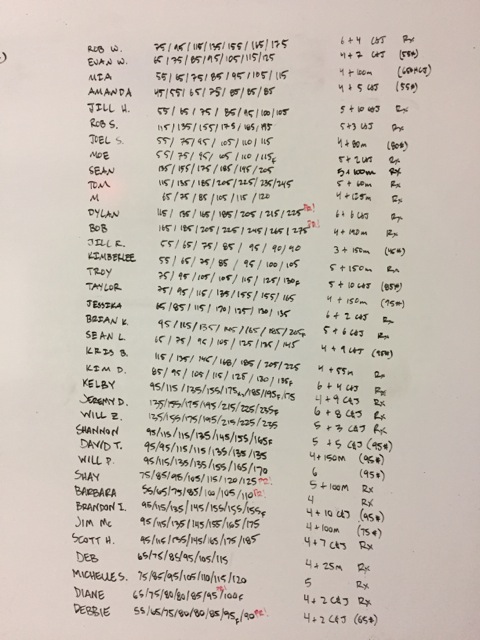 ROB W. 75/95/115/135/155/165/175 6+4 C&J Rx
EVAN W. 65/75/85/95/105/115/125 4+2 C&J (55#)
MIA 55/65/75/85/95/105/115 4+100m
AMANDA 45/55/65/75/85/85/85 4+5 C&J (55#)
JILL H. 55/65/75/85/95/100/105 5+10 C&J Rx
ROB S. 115/135/155/175/185/195 5+3 C&J Rx
JOEL S. 55/75/95/105/110/115 4+80m (80#)
MOE 55/75/95/105/110/115F 5+2 C&J Rx
SEAN 135/155/175/185/195/205 5+100m Rx
TOM 115/135/185/205/225/235/245 5+60m Rx
M 65/75/85/105/115/120 4+125m Rx
DYLAN 115/135/165/185/205/215/225 PR! 6+6 C&J Rx
BOB 165/185/205/225/245/265/275 PR! 4+190m Rx
JILL R. 55/65/75/85/95/90/90 3+150m (45#)
KIMBERLEE 55/65/75/85/95/100/105 5+150m Rx
TROY 75/95/105/105/115/125/130F 5+10 C&J (85#)
TAYLOR 75/95/115/135/155/155/165 4+150m (75#)
JESSIKA 65/85/115/120/125/130/135 6+2 C&J Rx
BRIAN K. 95/115/135/145/165/185/205F 5+6 C&J Rx
SEAN L. 65/75/95/105/125/135/145 4+9 C&J (95#)
KRIS B. 115/135/145/165/185/205/225 4+55m Rx
KIM D. 85/95/105/115/125/130/135F 6+4 C&J Rx
KELBY 95/115/135/155/175F/185/195F/175 4+9 C&J Rx
JEREMY D. 135/155/175/195/215/225/235F 6+8 C&J Rx
WILL Z. 135/155/175/205/215/225/235 5+3 C&J Rx
SHANNON 95/115/115/135/145/155/165F 5+5 C&J (95#)
DAVID T. 95/95/115/115/135/135/135 4+150m (95#)
WILL P. 95/115/135/135/155/165/170 6 (95#)
SHAY 75/85/95/105/115/120/125 PR! 5+100m Rx
BARBARA 55/65/75/85/100/105/110 PR! 4 Rx
BRANDON I. 95/115/135/145/155/155/155F 4+10 C&J (95#)
JIM MC 95/115/135/145/155/165/175 4+100m (75#)
SCOTT H. 95/115/135/145/165/175/185 4+7 C&J Rx
DEB 65/75/85/95/105/115 4+25m Rx
MICHELLE S. 75/85/95/105/110/115/120 5 Rx
DIANE 65/75/80/80/85/95 PR!/100F 4+2 C&J Rx
DEBBIE 55/65/75/80/80/85/95F/90 PR! 4+2 C&J (65#)